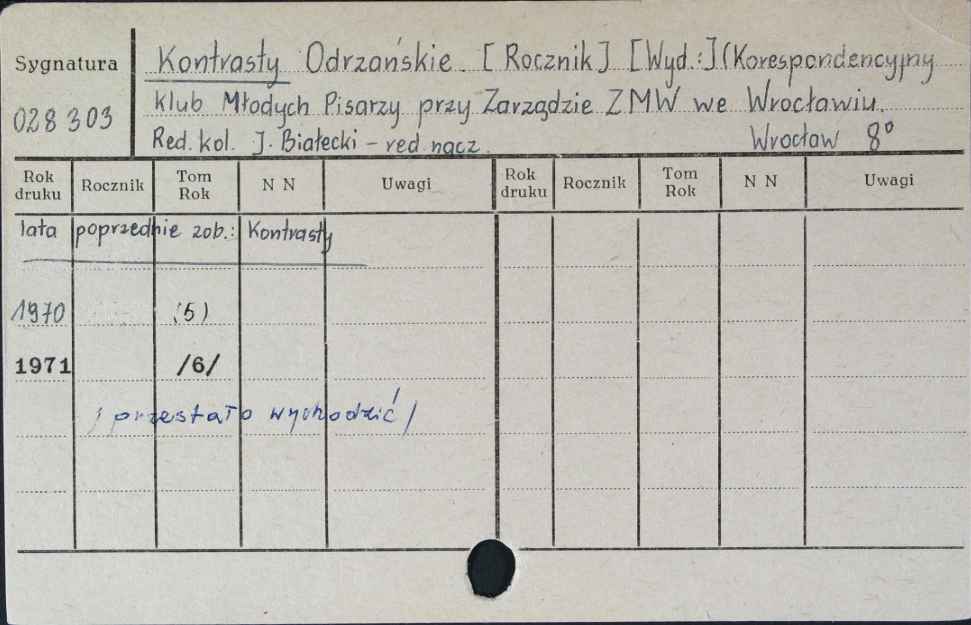 Sygnatura
028 303
Kontrasty Odrzańskie. [Rocznik] [Wyd.:] (Korespondencyjny
klub Młodych Pisarzy przy Zarządzie ZMW we Wrocławiu.
Red. kol. J. Białecki – red. nacz. Wrocław 8°
Rok druku Rocznik Tom Rok N N Uwagi Rok druku Rocznik Tom Rok N N Uwagi
lata poprzednie zob.: Kontrasty
1970 (5)
1971 /6/
/przestało wychodzić/